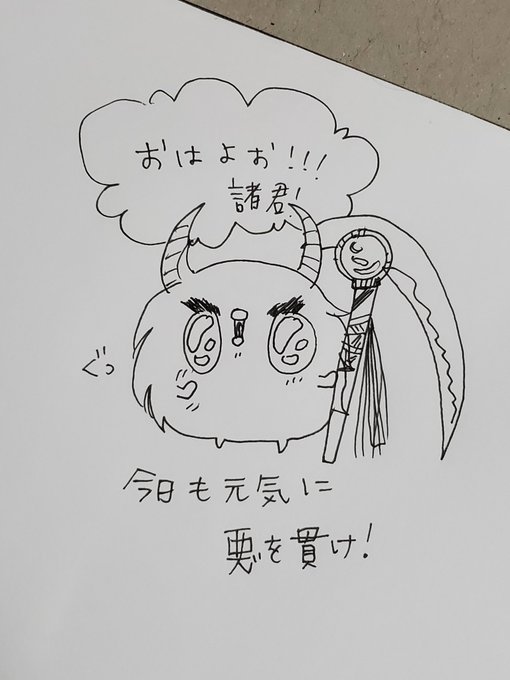 おはよお!!!
諸君!
ぐっ
今日も元気に
悪を貫け!